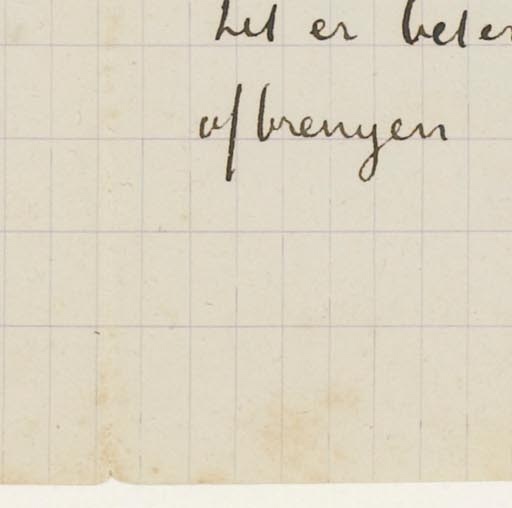 het er beter
afbrengen